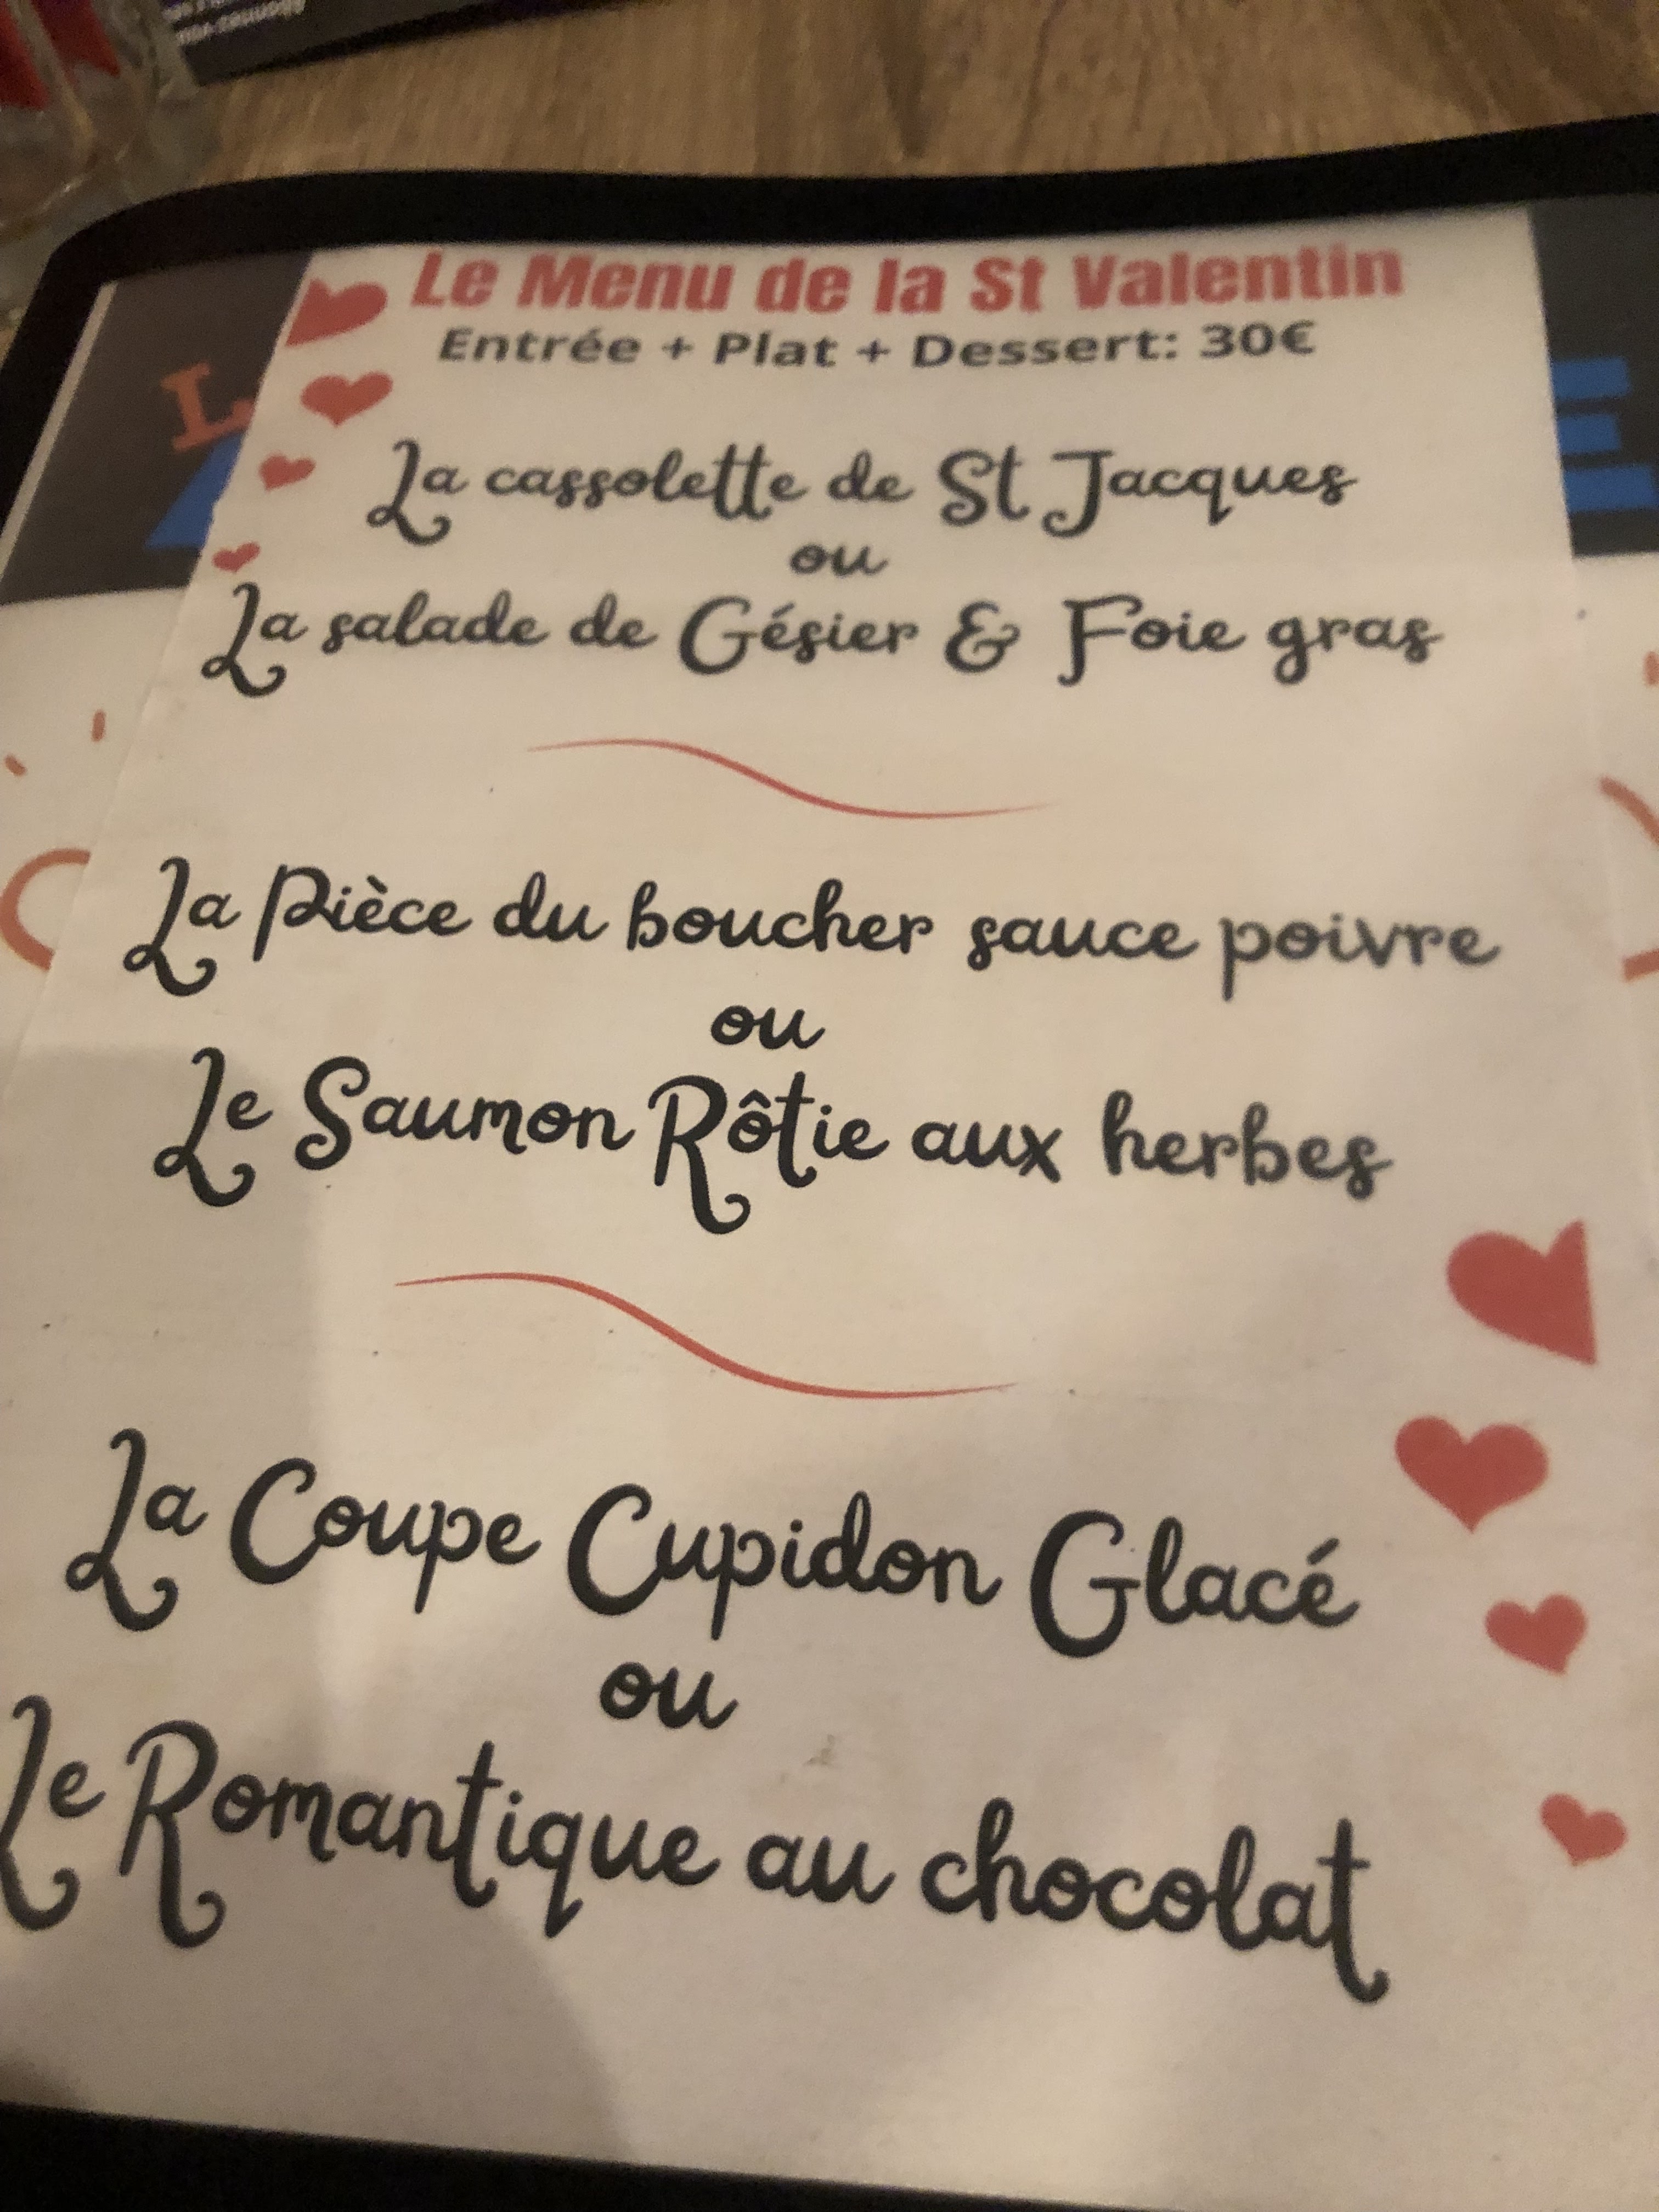 Le Menu de la St Valentin
Entrée + Plat + Dessert: 30€
La cassolette de St Jacques
ou
La salade de Gésier & Foie gras
La Pièce du boucher sauce poivre
ou
Le Saumon Rôtie aux herbes
La Coupe Cupidon Glacé
ou
Le Romantique au chocolat